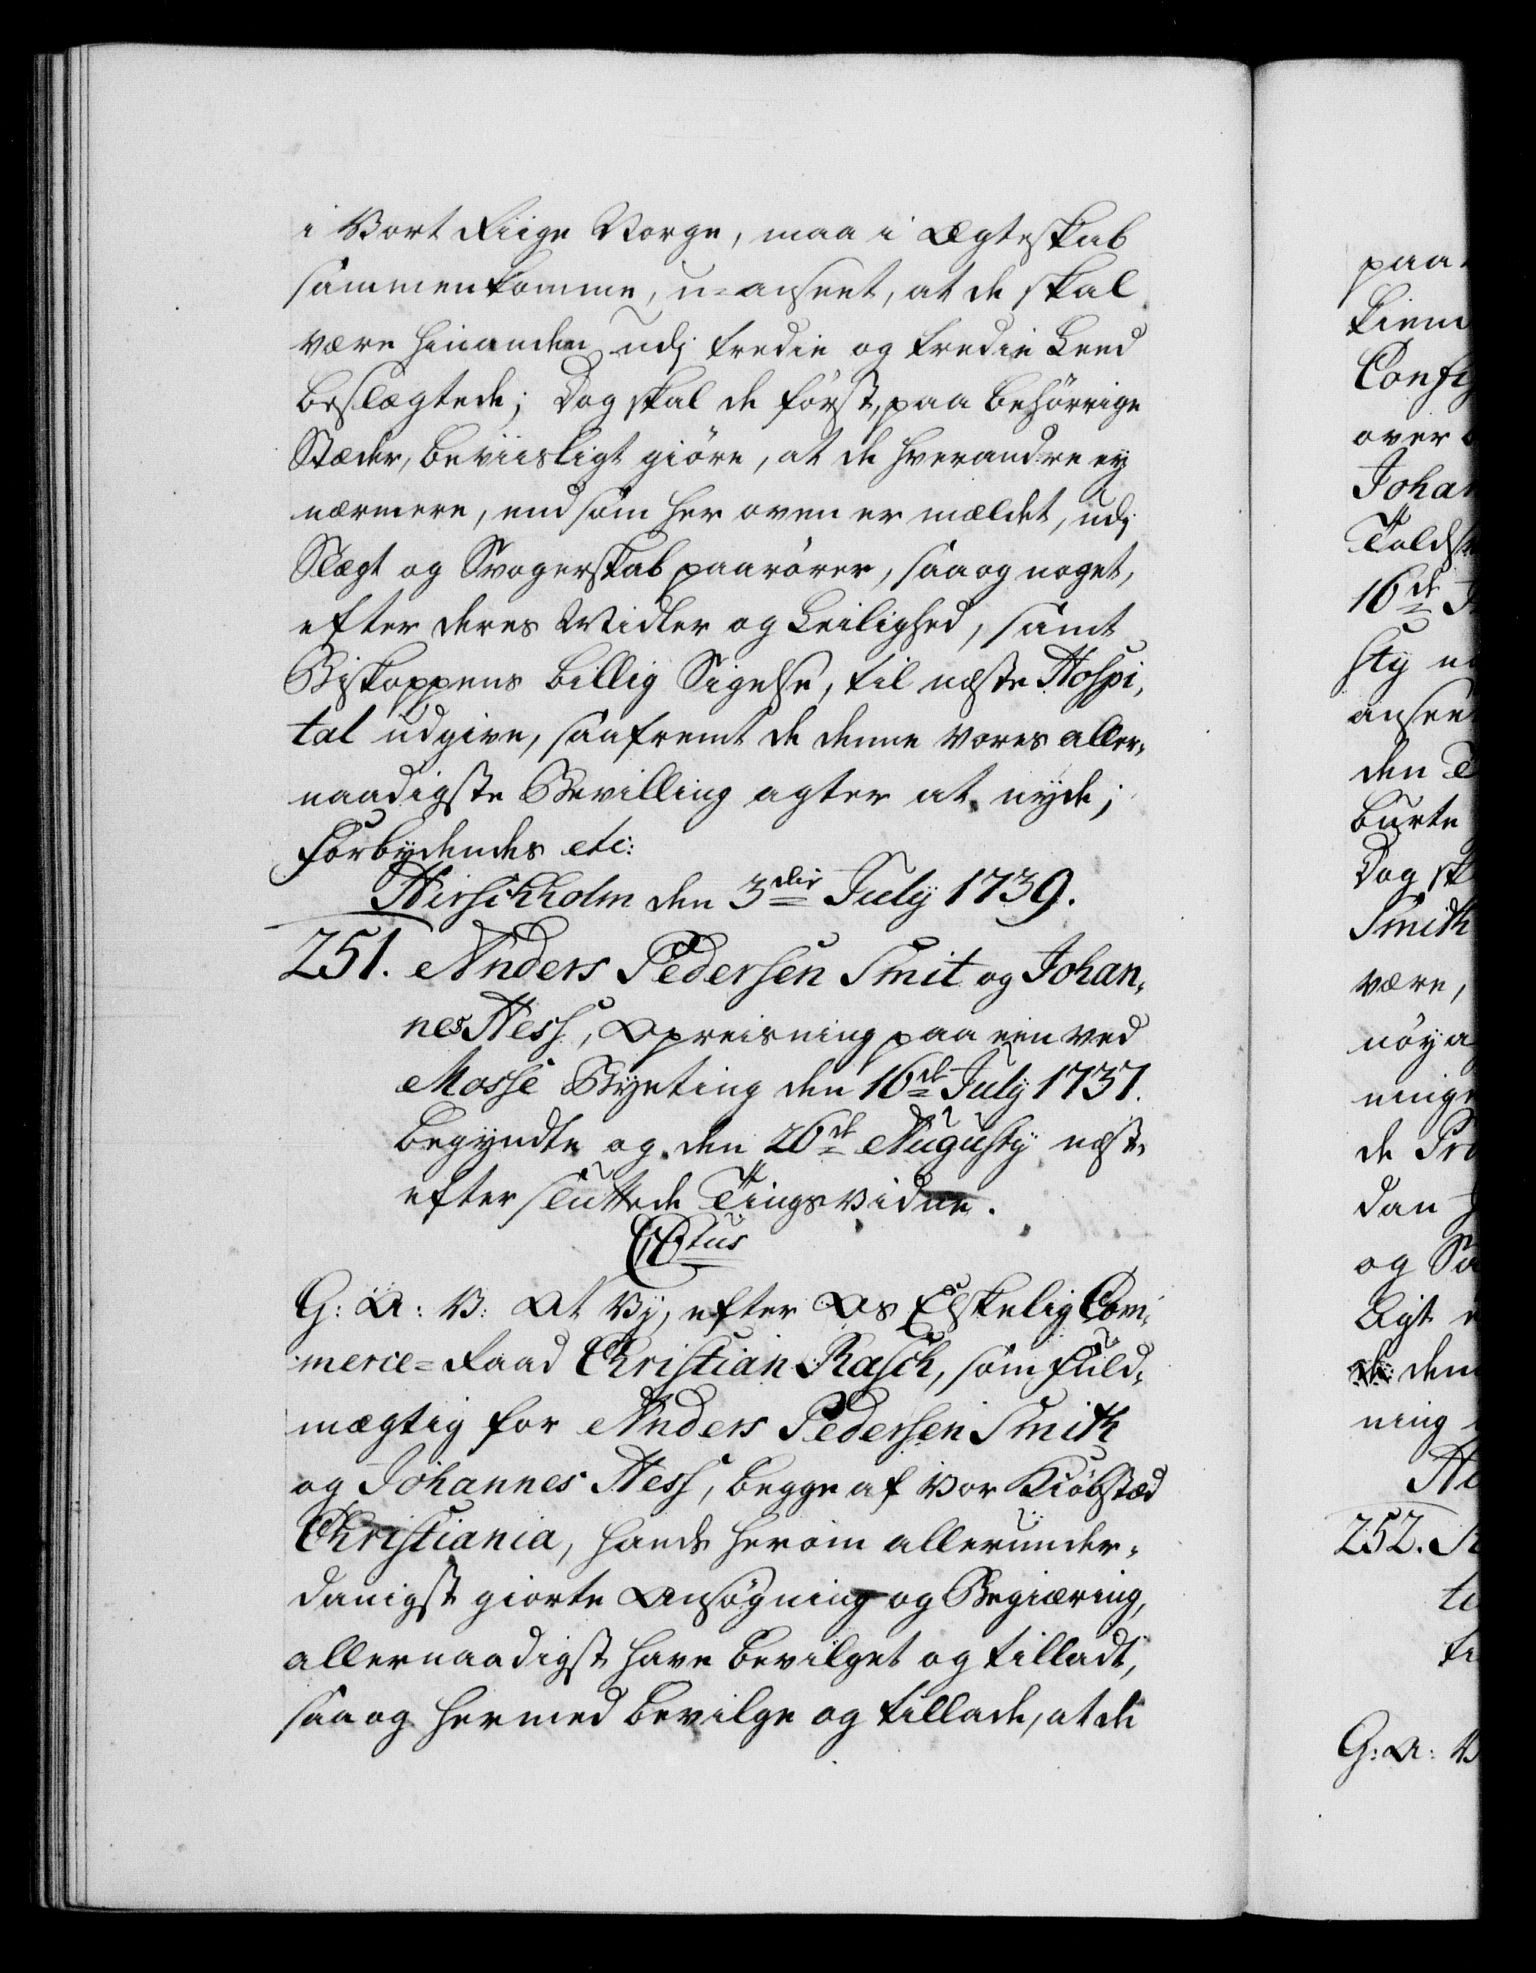 i Vort Riige Norge, maa i Ægteskab
sammenkomme, u-anseet, at de skal
være hinanden udj tredie og tredie Leed
beslægtede; Dog skal de først, paa behørrige
Stæder, beviisligt giøre, at de hverandre ey
nærmere, end som her oven er mældet, udj
Slægt og Svogerskab paarører, saa og noget,
efter deres Midler og Leilighed, samt
Biskoppens billig Sigelse, til næste Hospi-
tal udgive, saafremt de denne Vores aller-
naadigste Bevilling agter at nyde;
Forbydendes etc:
Hirschholm den 3die July 1739.
251. Anders Pedersen Smit og Johan-
nes Hess, Opreisning paa een ved
Mosse Byeting den 16de July 1737.
begyndte og den 26de Augusty næst-
efter sluttede Tingsvidne.
C6tus
G: A: V: At Vy, efter Os Elskelig Com-
merce-Raad Christian Rasch, som Fuld-
mægtig for Anders Pedersen Smith
og Johannes Hess, begge af Vor Kiøbstæd
Christiania, hands herom allerunder-
danigst giorte Ansøgning og Begiæring,
allernaadigst have bevilget og tilladt,
saa og hermed bevilge og tillade, at de
paa
over
Johan
16de
den
Dog sk
Smith
være,
nøya
de Pro
dan
og Sa
Agt
dem
ning
252.
G: A: V